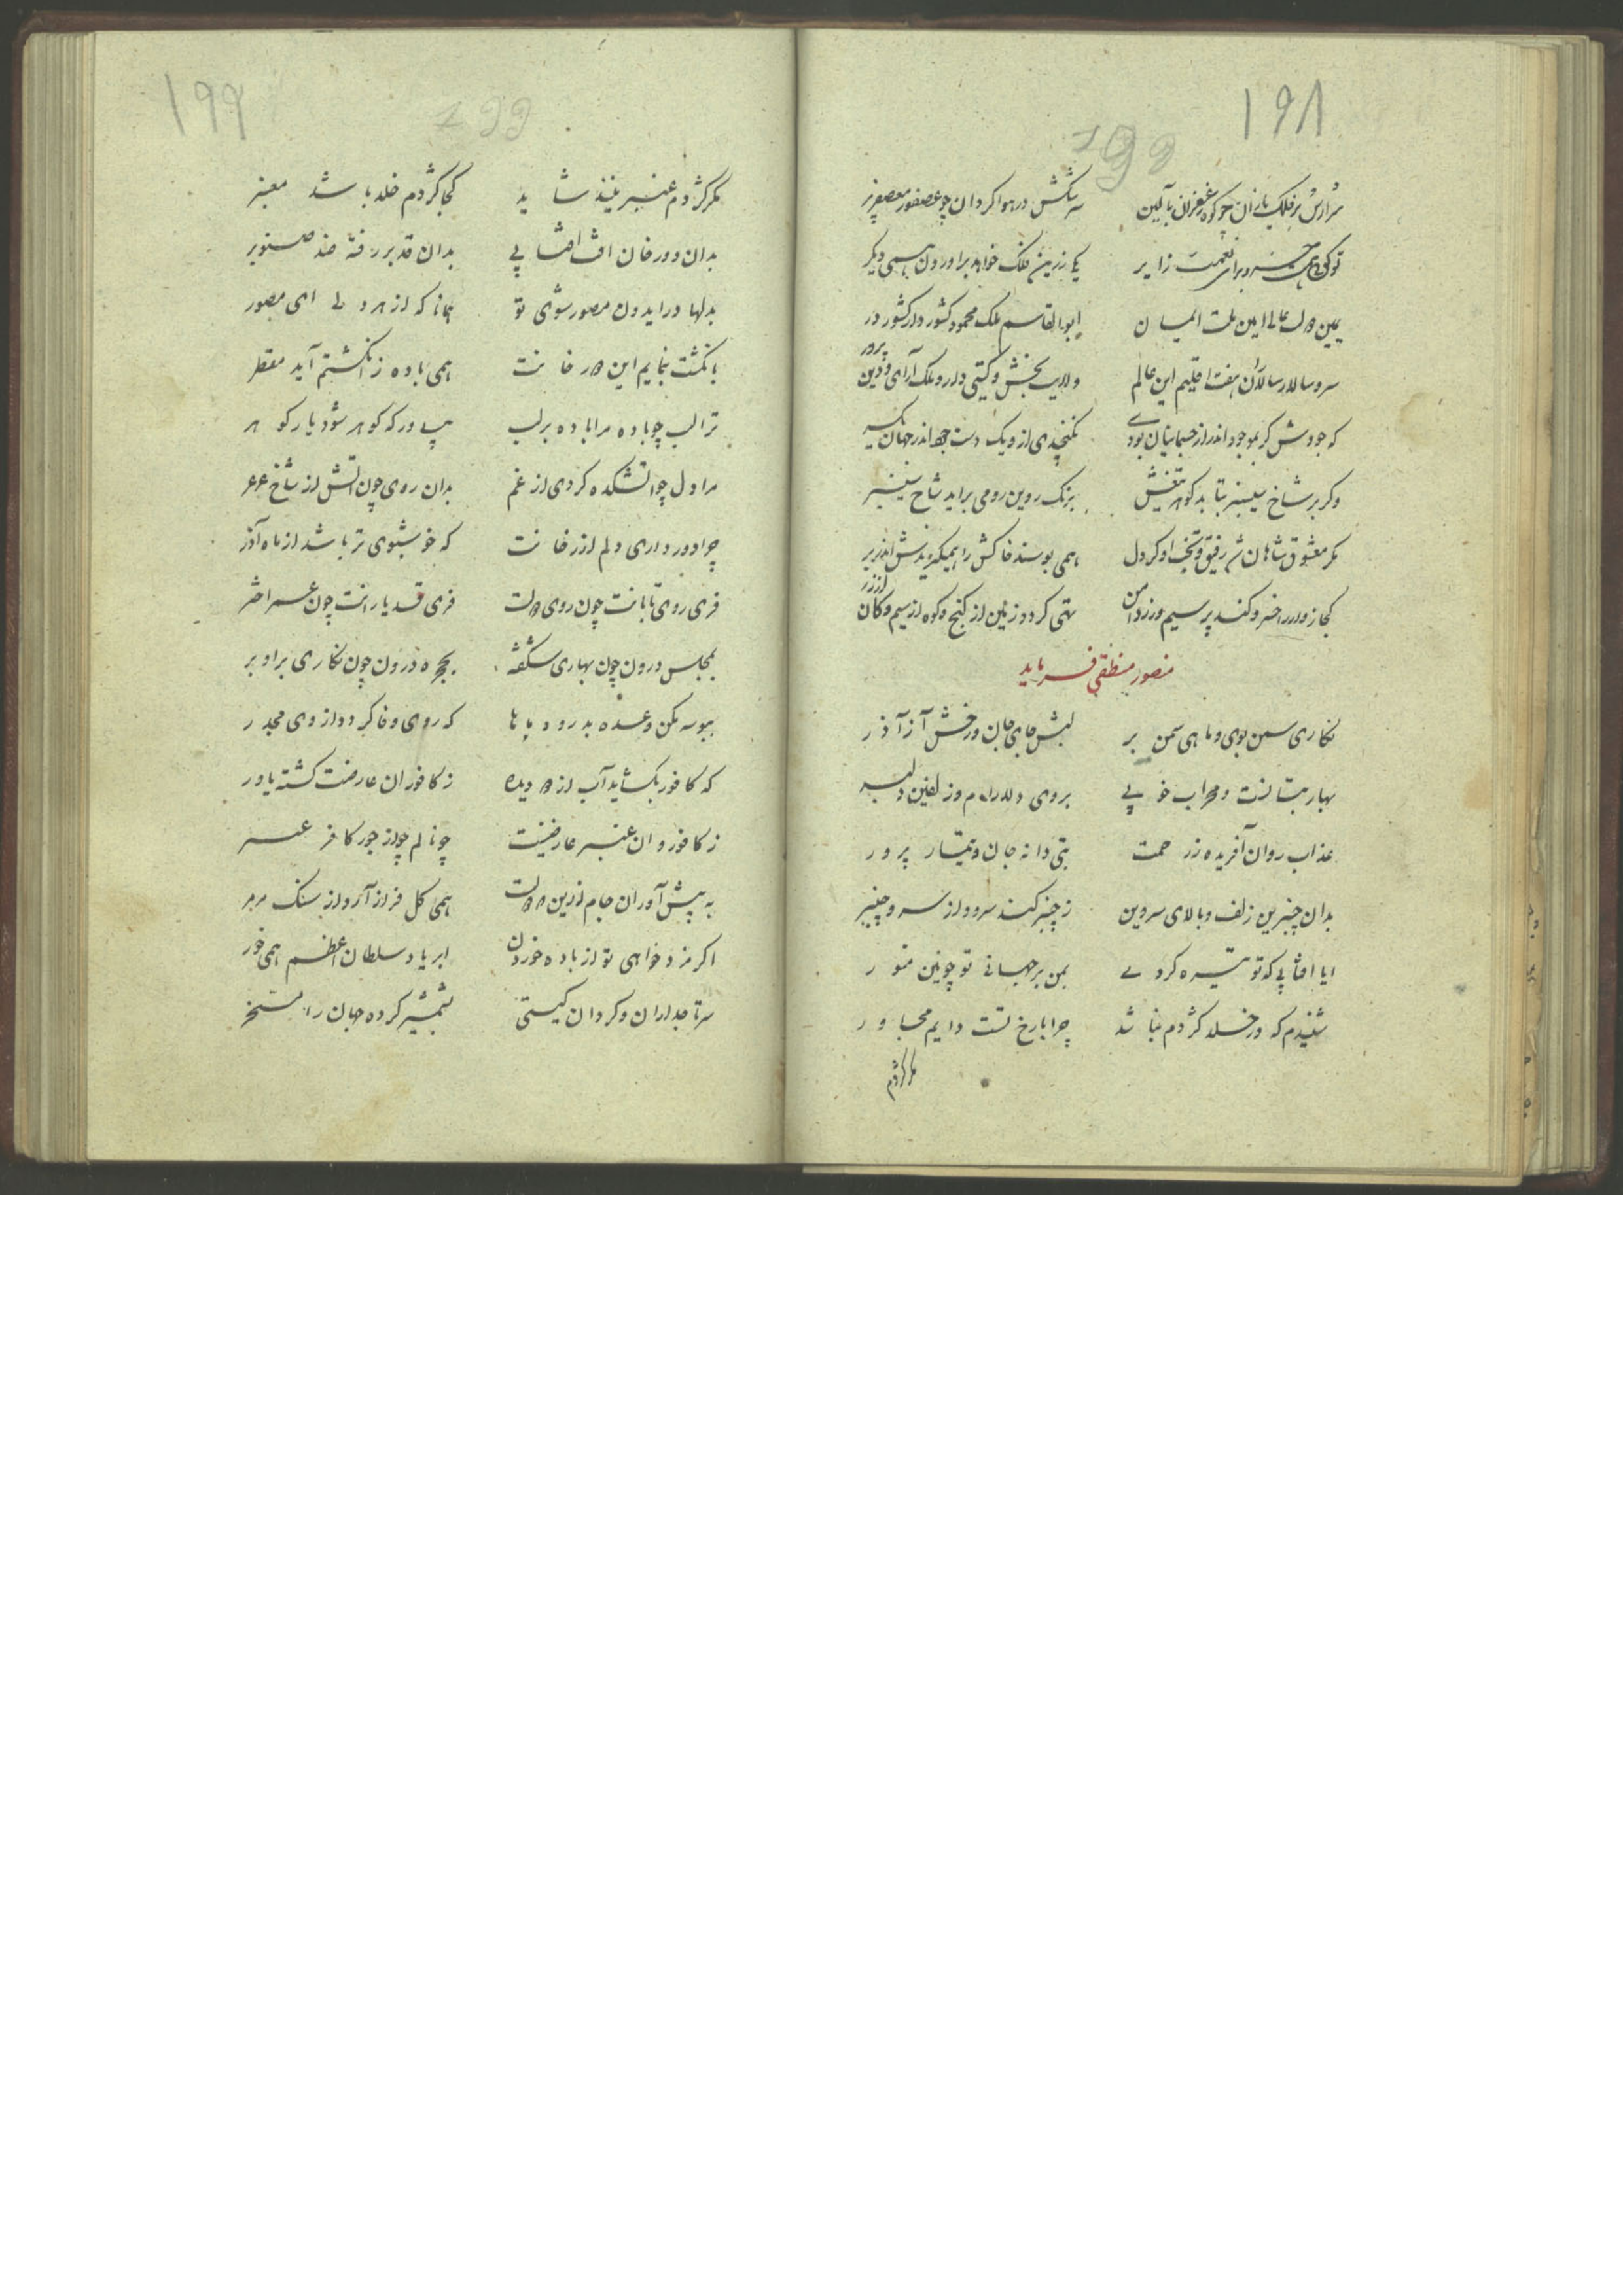 ۱۹۸
199
شرارش بر فلک یازان چو کوه زعفران بآلین سرشکش در هوا کردان چو عصفور معصفر پر
تو کوی همی خسرو برای نعمت زایر یکی زرین فلک خواهد براوردن همی دیکر
یمین دولت عالی امین ملت المیان ابوالقاسم ملک محمود کشور دار کشور در
سر و سالار سالاران هفت اقلیم این عالم ولایت بخش و کیتی دار و ملک آرای و دین پرور
که جودش کر بموجود اندر از جسمانیان بودی نکنجیدی ازو یک دست جهد اندر جهان یکسر
وکر بر شاخ سیسنبر بتابد کوهر تیغش برنک روین رومی براید شاخ سیسنبر
مکر معشوق شاهان شد رفیق و تخت او کز دل همی بوسند خاکش را همیکیرندش اندر بر
کجا زوار را خسرو کند پر سیم و زر دامن تهی کردد زمین از کنج و کوه از سیم و کان از زر
منصور منطقی فرماید
نکاری سمن بوی و ماهی سمن بر لبش جای جان و رخش آز آذر
بهار بتانست و محراب خوبی بروی دلارام و زلفین دلبر
عذاب روان آفریده ز رحمت بتی دانه جان و تیمار پرور
بدان چنبرین زلف و بالای سروین ز چنبر کند سرو و از سرو چنبر
ایا افتابی که تو تیره کردی بمن بر جهانی تو چونین منور
شنیدم که در خلد کژدم نباشد چرا با رخ تست دایم مجاور
مکر کژدم
۱۹۹
199
مکر کژدم عنبرینند شاید کجا کژدم خلد باشد معنبر
بدان دو رخان افت افتابی بدان قد بر رفته ضد صنوبر
بدلها دراید ون مصور شوی تو همانا که از هر دلی ای مصور
بانکشت بنمایم این دو رخانت همی باده ز انکشتم آید مقطر
ترا لب چو باده مرا باده بر لب بیاور که کوهر شود یار کوهر
مرا دل چو اتشکده کردی از غم بدان روی چون اتش از شاخ عرعر
چرا دور داری دلم از رخانت که خوشبوی تر باشد از ماه آذر
فری روی تابانت چون روی دولت فری قد یازانت چون عمر اختر
بمجلس درون چون بهاری شکفته بحجره درون چون نکاری برابر
ببوسه مکن وعده بدرود باها که روی وفا کردد از وی مجدر
که کافور بکشاید آب از دو دیده ز کافور ان عارضت کشته یاور
ز کافور و ان عنبر عارضینت چو نالم چو از جور کافر عسر
به پیش آور ان جام زرین دولت همی کل فراز آرد از سنک مرمر
اکر مزد خواهی تو از باده خوردن ابر یاد سلطان اعظم همی خور
سر تاجداران و کردان کیستی بشمشیر کرده جهان را مسخر